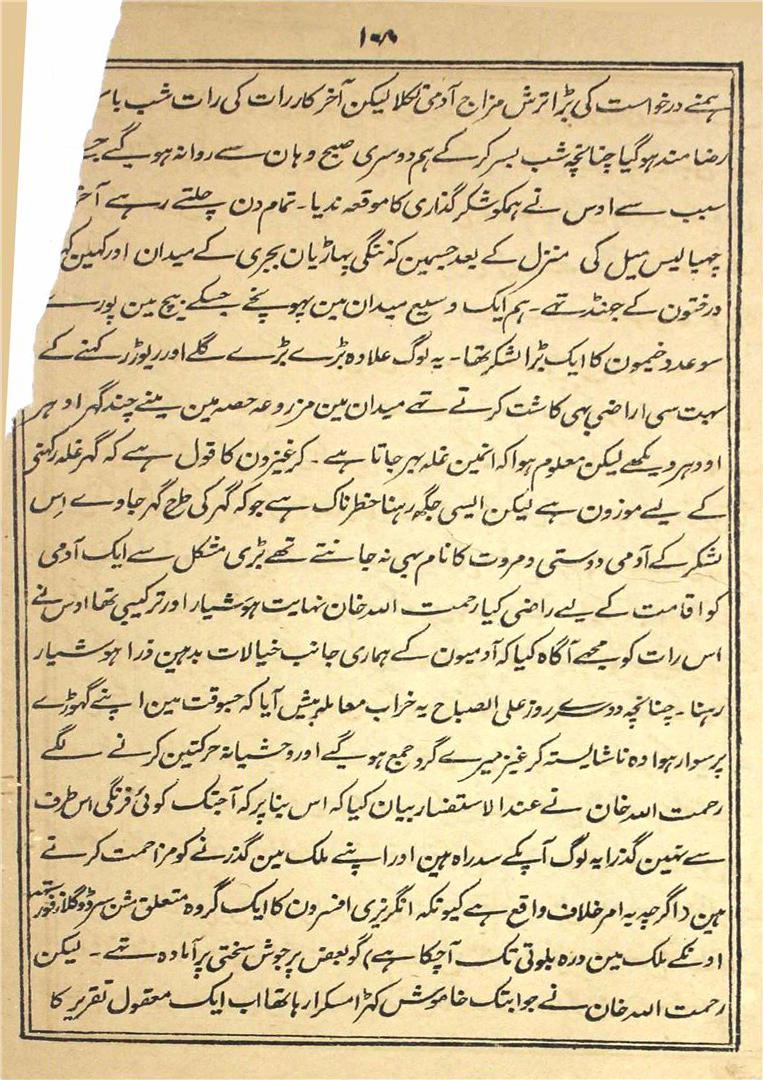 ۱۰۸
ہمنے درخواست کی بڑا ترش مزاج آدمی نکلا لیکن آخر کار رات کی رات شب
رضامند ہوگیا چنانچہ شب بسر کرکے ہم دوسری صبح وہان سے روانہ ہوگئے
سبب سے اوس نے ہمکو شکر گذاری کا موقعہ ندیا۔ تمام دن چلتے رہے
چہیالیس میل کی منزل کے بعد جسمین کہ ننگی پہاڑیان بجری کے میدان اور کہین
درختون کے جہنڈ تھے۔ ہم ایک وسیع میدان مین پہونچے جسکے بیچ مین پورے
سو عدد خیمون کا ایک بڑا لشکر تھا۔ یہ لوگ علاوہ بڑے بڑے گلے اور ریوڑ رکہنے کے
بہت سی اراضی بہی کاشت کرتے تھے میدان مین مزروعہ حصہ مین مینے چند گہر اوہر
اودہر دیکھے لیکن معلوم ہوا کہ انمین غلہ بہر جاتا ہے۔ کرغیزون کا قول ہے کہ گہر غلہ رکہنی
کے لیے موزون ہے لیکن ایسی جگہ رہنا خطرناک ہے جو کہ گہر کی طرح گہر جاوے اِس
لشکر کے آدمی دوستی و مروت کا نام بہی نہ جانتے تھے بڑی مشکل سے ایک آدمی
کو اقامت کے لیے راضی کیا رحمت اللہ خان نہایت ہوشیار اور ترکیبی تھا اوس نے
اس رات کو مجھے آگاہ کیا کہ آدمیون کے ہماری جانب خیالات بد ہین ذرا ہوشیار
رہنا۔ چنانچہ دوسرے روز علی الصباح یہ خراب معاملہ پیش آیا کہ جسوقت مین اپنے گہوڑے
پر سوار ہوا وہ ناشایستہ کرغیز میرے گرد جمع ہوگیے اور وحشیانہ حرکتین کرنے لگے
رحمت اللہ خان نے عند الاستفسار بیان کیا کہ اس بنا پر کہ آجتک کوئی فرنگی اس طرف
سے نہین گذرا یہ لوگ آپکے سد راہ ہین اور اپنے ملک مین گذرنے کو مزاحمت کرتے
ہین (اگرچہ یہ امر خلاف واقع ہے کیونکہ انگریزی افسرون کا ایک گروہ متعلق مشن سر ڈوگلاز فورستہہ
اونکے ملک مین درہ بلوتی تک آچکا ہے) گو بعض پرجوش سختی پر آمادہ تھے۔ لیکن
رحمت اللہ خان نے جو ابتک خاموش کہڑا مسکرا رہا تھا اب ایک معقول تقریر کا